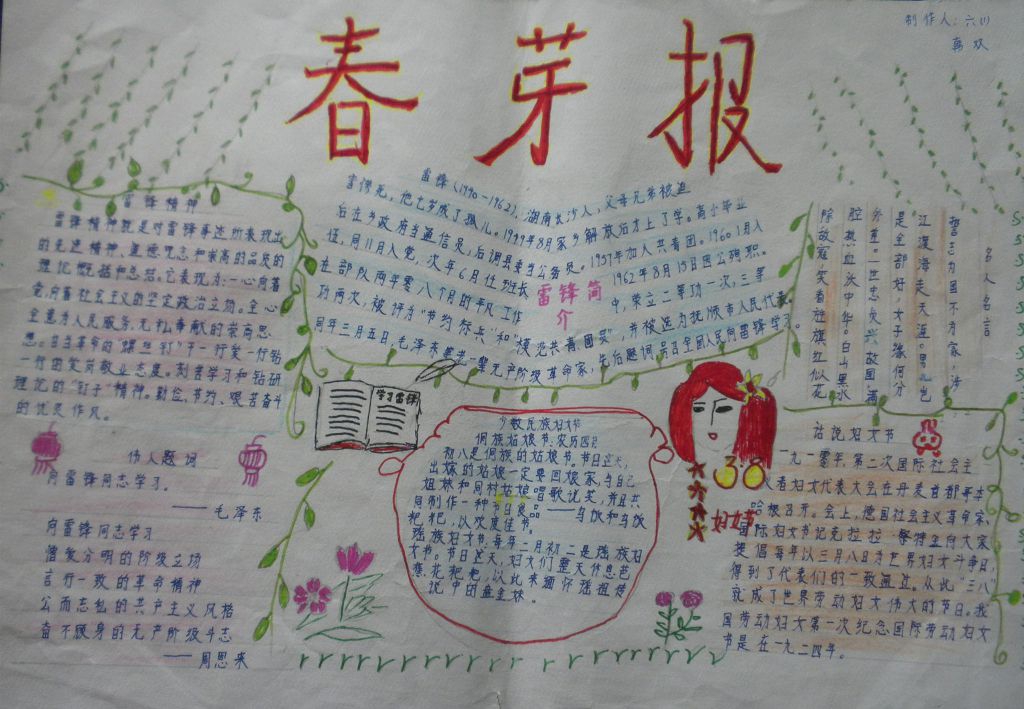 春芽报
制作人:六(1)
韩欢
雷锋精神
雷锋精神就是对雷锋事迹所表现出
的先进精神、道德观念和崇高的品质的
理论概括和总结。它表现为:一心向着
党,向着社会主义的坚定政治立场。全心
全意为人民服务,无私奉献的崇高思
想。自当革命的“螺丝钉”干一行爱一行钻
一行的爱岗敬业态度。刻苦学习和钻研
理论的“钉子”精神。勤俭、节约、艰苦奋斗
的优良作风。
伟人题词
向雷锋同志学习。
——毛泽东
向雷锋同志学习
憎爱分明的阶级立场
言行一致的革命精神
公而忘私的共产主义风格
奋不顾身的无产阶级斗志
——周恩来
雷锋(1940-1962),湖南长沙人,父母兄弟被迫
害惨死,他七岁成了孤儿。1949年8月家乡解放后才上了学。高小毕业
后在乡政府当通信员,后调县委当公务员。1957年加入共青团。1960 1月入
伍,同11月入党,次年6月任班长 1962年8月15日因公殉职。
在部队两年零八个月的平凡工作 中,荣立二等功一次,三等
功两次,被评为“节约标兵”和“模范共青团员”,并被选为抚顺市人民代表。
同年三月五日,毛泽东等老一辈无产阶级革命家,先后题词,号召全国人民向雷锋学习。
雷锋简
介
学习雷锋
少数民族妇女节
侗族姑娘节:农历四月
初八是侗族的姑娘节。节日这天,
出嫁的姑娘一定要回娘家,与自己
姐妹和同村姑娘唱歌说笑,并且共
同制作一种节日食品——乌饭和乌饭
粑粑,以欢度佳节。
瑶族妇女节:每年二月初二是瑶族妇
女节。节日这天,妇女们整天休息艺
粑粑,以此来缅怀瑶祖传
说中的
三八
妇女节
名人名言
誓志为国不为家,涉
江渡海走天涯。男儿岂
是全都好,女子缘何分
外差。一世忠贞兴故国,满
腔热血沃中华。白山黑水
除敌寇,笑看旌旗红似花
话说妇女节
一九一零年,第二次国际社会主
义者妇女代表大会在丹麦首都哥本
哈根召开。会上,德国社会主义革命家、
国际妇女书记克拉拉·蔡特金向大家
提倡每年以三月八日为世界妇女斗争日,
得到了代表们的一致通过。从此“三八”
就成了世界劳动妇女伟大的节日。我
国劳动妇女第一次纪念国际劳动妇女
节是在一九二四年。